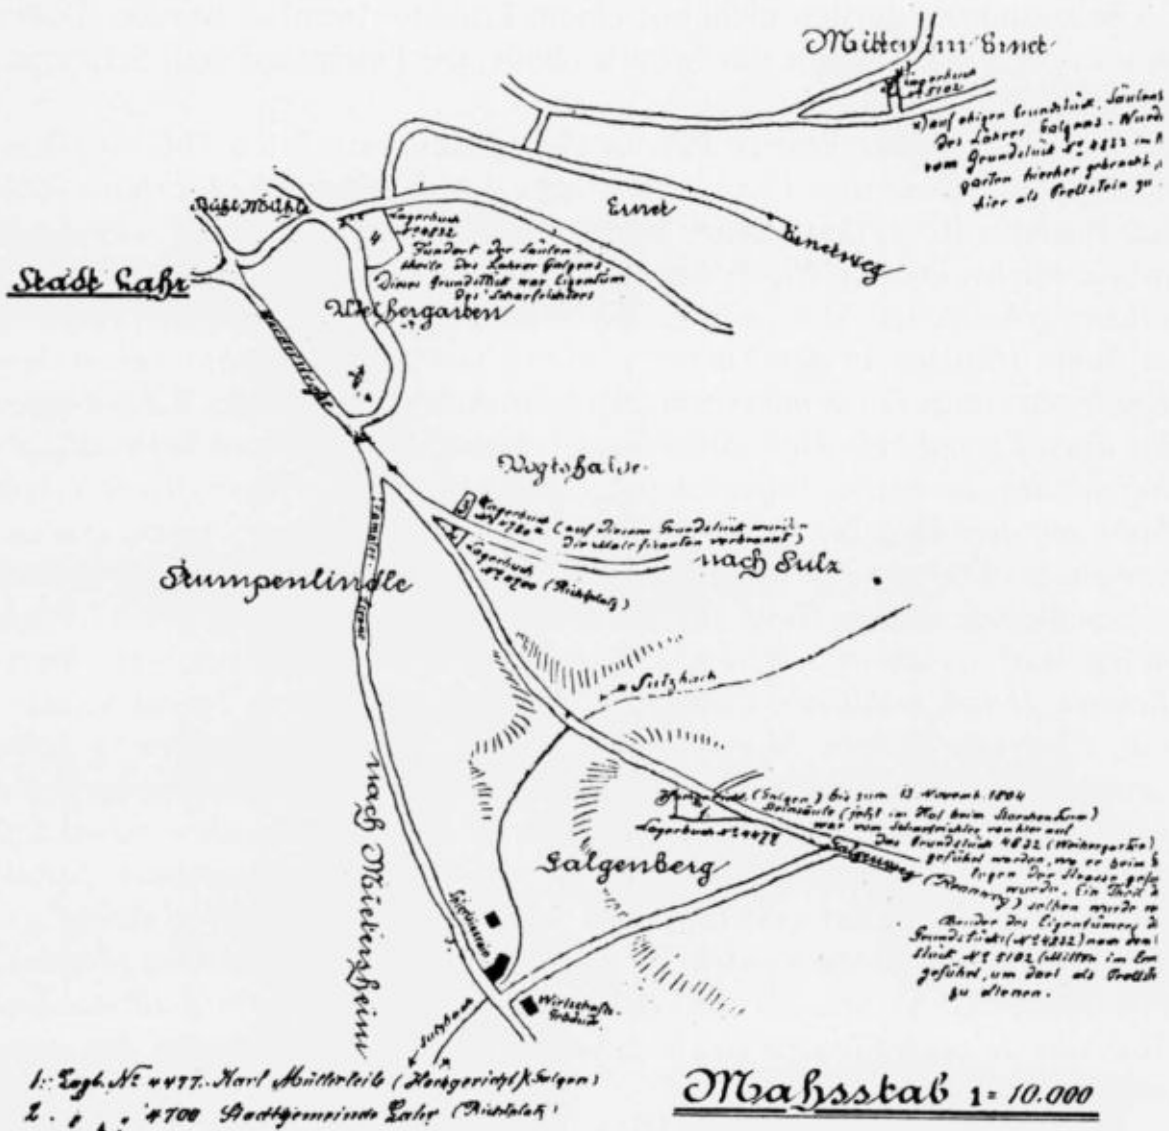 Mitten im Ernet
Lagerbuch
Nº 5102
x) auf obigen Grundstück, Säulens
des Lahrer Galgens - Wurd
vom Grundstück Nº 4832 im
garten hierher gebracht,
hier als Prellstein zu
Ernet
Ernetweg
Lagerbuch
Nº 4832
4
Fundort der Säulen-
theile des Lahrer Galgens
Dieses Grundstück war Eigentum
des Scharfrichters
Stadt Lahr
Weihergarten
Vogtshalde
3
Lagerbuch
(auf diesem Grundstück wurden
die Malefikanten verbrannt)
2
Lagerbuch
Nº 4700 (Richtplatz)
nach Sulz
Stumpenlindle
Sulzbach
nach Mietersheim
Galgenberg
(Galgen) bis zum 13 Novemb. 1804
(jetzt im Hof beim Storchenturm)
war vom Scharfrichter von hier auf
das Grundstück 4832 (Weihergarten)
geführt worden, wo er beim
legen der Strassen
wurde. Ein Theil
) selben wurde
Bruder des Eigentümers
Grundstücks (Nº 4832) nach dem
stück Nº 5102 (Mitten im
geführt, um dort als
zu dienen.
Lagerbuch Nº 4477
1
Galgenweg
Sulzbach
Wirtschafts-
Gebäude
1. Lagb. Nº 4477. Karl Müllerleile (Hochgericht) (Galgen)
2. " " " 4700 Stadtgemeinde Lahr (Richtplatz)
Mahsstab 1 = 10.000